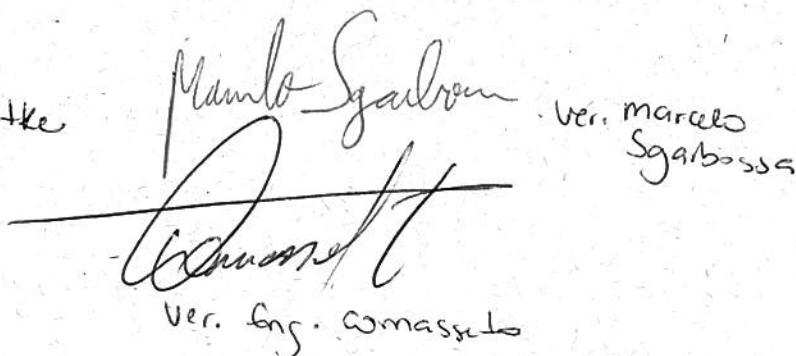 tke Marcelo Sgarbossa ver. marcelo
Sgarbossa
Comassetto
ver. Eng. Comassetto